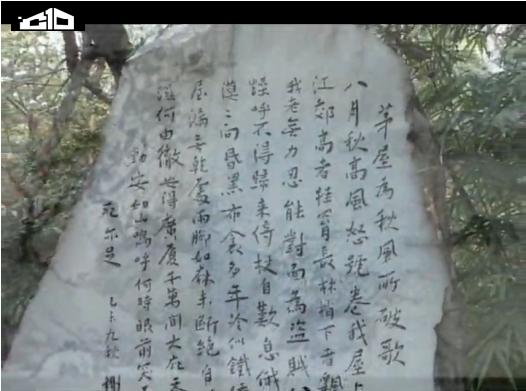 茅屋為秋風所破歌
八月秋高風怒號卷我屋上
江郊高者挂罥長林梢下者飄
我老無力忍能對面為盜賊
燥呼不得歸來倚杖自歎息俄
漠〻向昏黑布衾多年冷似鐵
屋漏無乾處雨腳如麻未斷絕自
何由徹安得廣厦千萬間大庇天
動安如山嗚呼何時眼前突
死亦足
九秋